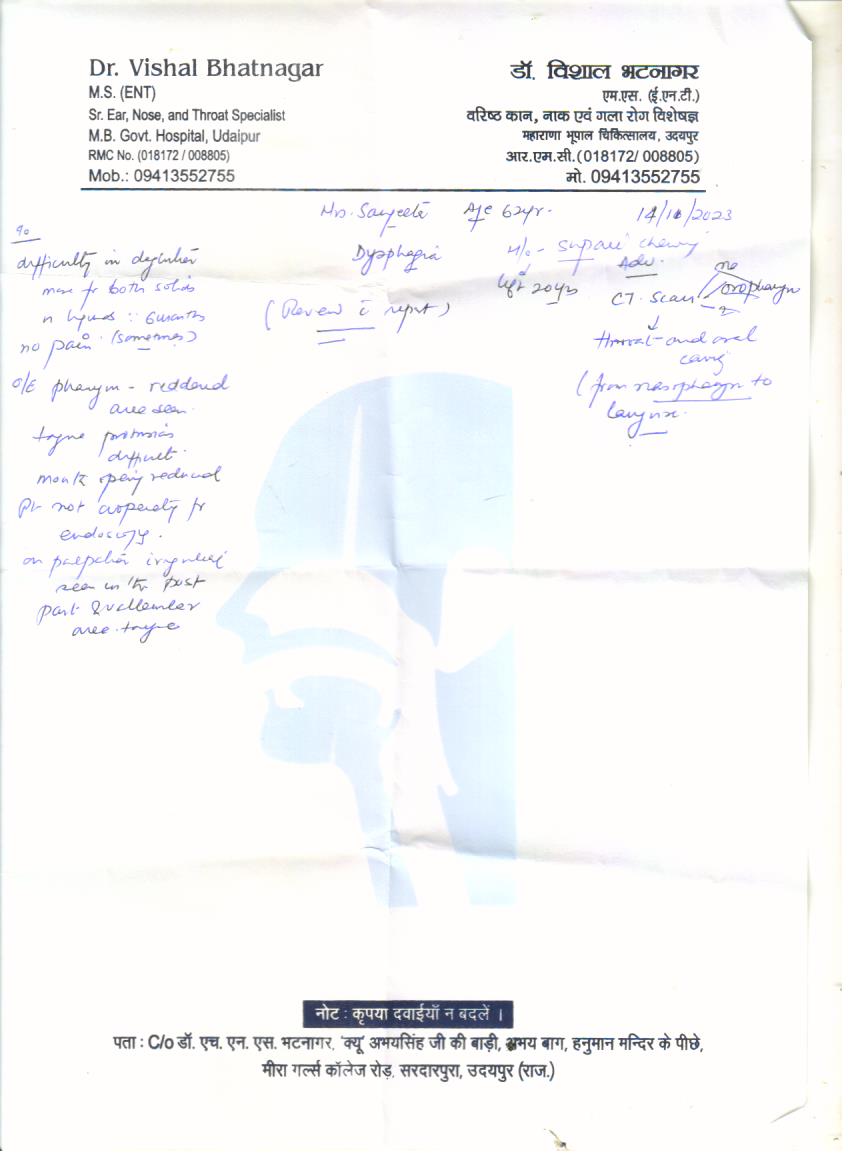 Dr. Vishal Bhatnagar
M.S. (ENT)
Sr. Ear, Nose, and Throat Specialist
M.B. Govt. Hospital, Udaipur
RMC No. (018172 / 008805)
Mob.: 09413552755
डॉ. विशाल भटनागर
एम.एस. (ई.एन.टी.)
वरिष्ठ कान, नाक एवं गला रोग विशेषज्ञ
महाराणा भूपाल चिकित्सालय, उदयपुर
आर.एम.सी.(018172/ 008805)
मो. 09413552755
Mrs. Age 62yr.
difficulty in
more for both solids
n liquids :: 6 months
no pain (sometimes)
O/E pharynx - reddened
area seen.
tongue protrusion
difficult.
mouth opening reduced
Pt not cooperating for
endoscopy.
on palpation
seen in the post
part & vallecular
area tongue
Dysphagia
(Review c report)
H/o - supari chewing
left 20 yrs
Adv.
CT. Scan
oropharynx
throat and oral
cavity
(from nasopharynx to
larynx.
नोट : कृपया दवाईयाँ न बदलें ।
पता : C/o डॉ. एच. एन. एस. भटनागर, 'क्यू' अभयसिंह जी की बाड़ी, अभय बाग, हनुमान मन्दिर के पीछे,
मीरा गर्ल्स कॉलेज रोड़, सरदारपुरा, उदयपुर (राज.)